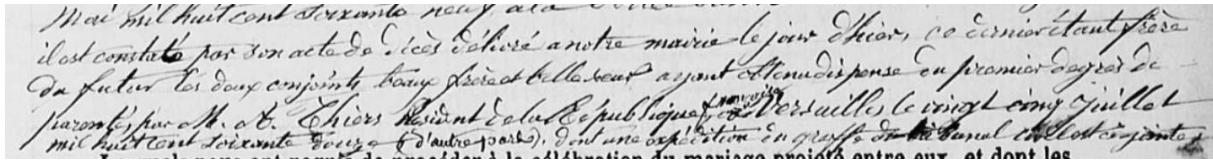 Mai mil huit cent soixante neuf
il est constaté par son acte de décès délivré a notre mairie le jour d'hier, ce dernier étant frère
du futur les deux conjoints beaux frère et belle sœur ayant obtenu dispense du premier degrés de
parentés par M. A. Thiers Président de la République française Versailles le vingt cinq Juillet
mil huit cent soixante douze (d'autre part), dont une expédition du greffe du tribunal est ci jointe
lesquels nous ont requis de procéder à la célébration du mariage projeté entre eux, et dont les